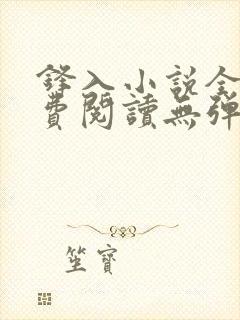 鋒入小說全
費閱讀無彈
坐寶